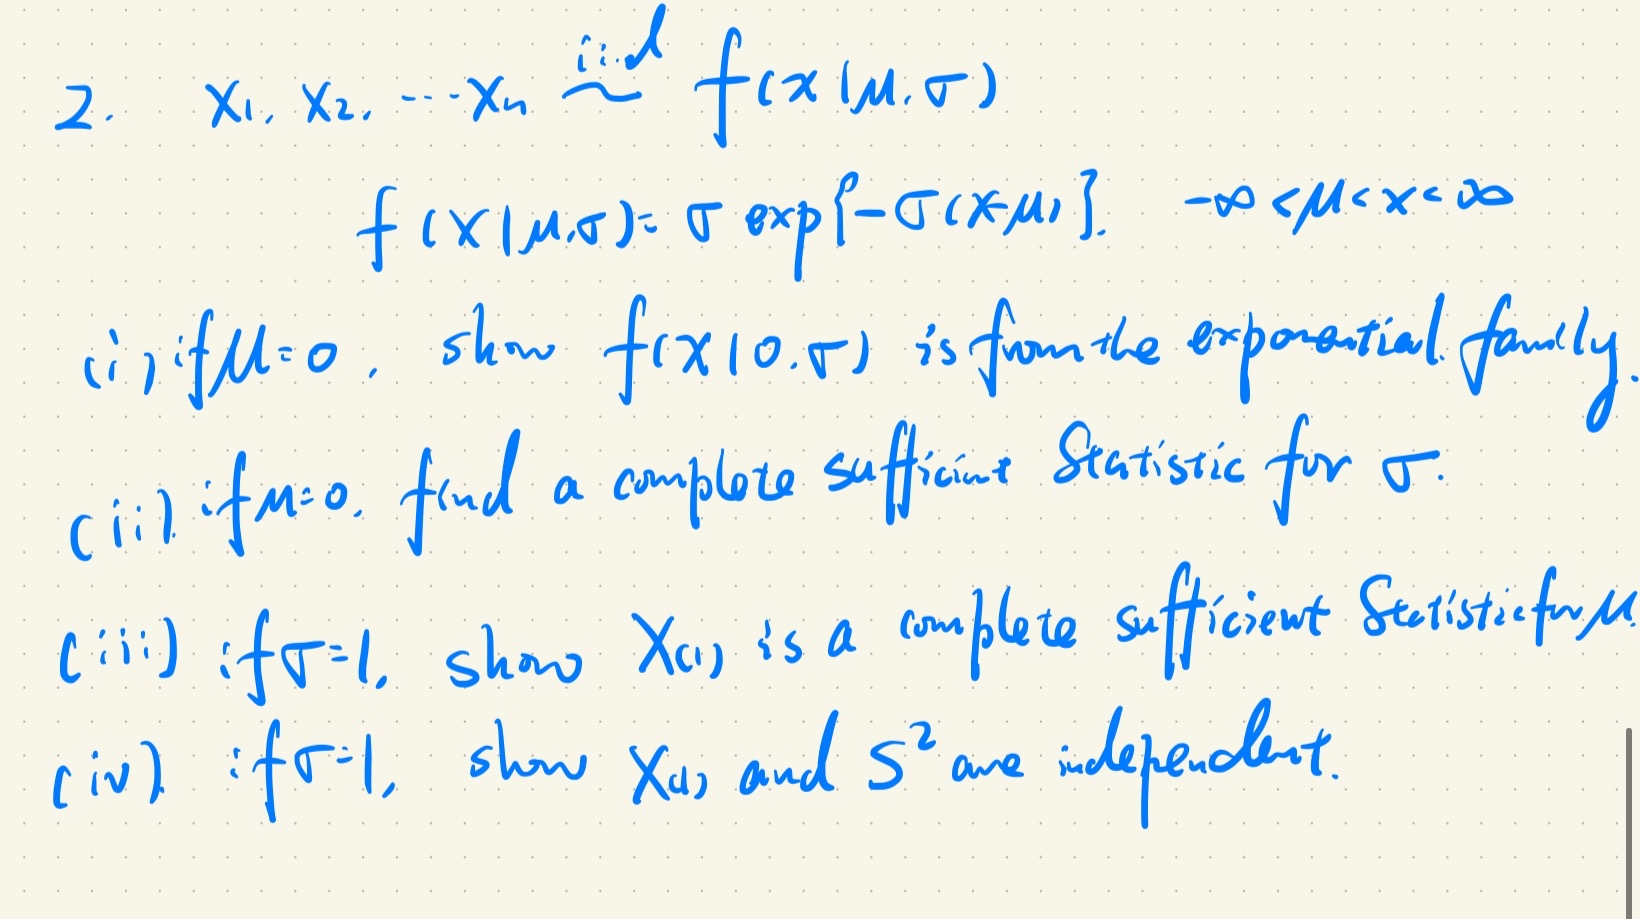 2. X1, X2, ... Xn iid ~ f(x|μ,σ)
f(x|μ,σ) = σ exp{-σ(x-μ)}. -∞ < μ < x < ∞
(i) if μ=0, show f(x|0.σ) is from the exponential family.
(ii). if μ=0. find a complete sufficient Statistic for σ.
(iii) if σ=1, show X(1) is a complete sufficient Statistic for μ.
(iv). if σ=1, show X(1) and S² are independent.